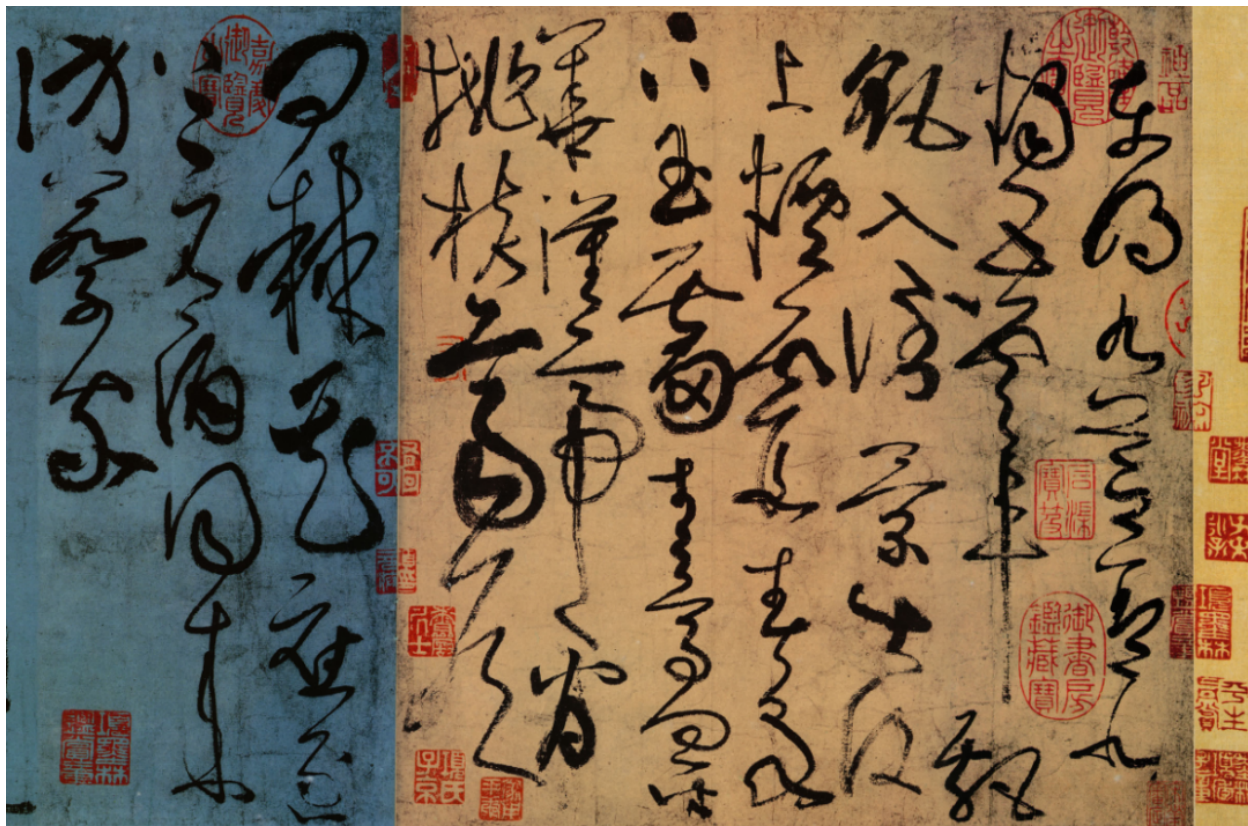 東明九芝蓋北
燭五雲車飄
颻入倒景出沒
上煙霞春泉
下玉霤青鳥向金
華漢帝看
桃核齊侯
問棘花應逐
上元酒同來
訪蔡家
神品
乾隆御覽之寶
御書房鑑藏寶
嘉慶御覽之寶